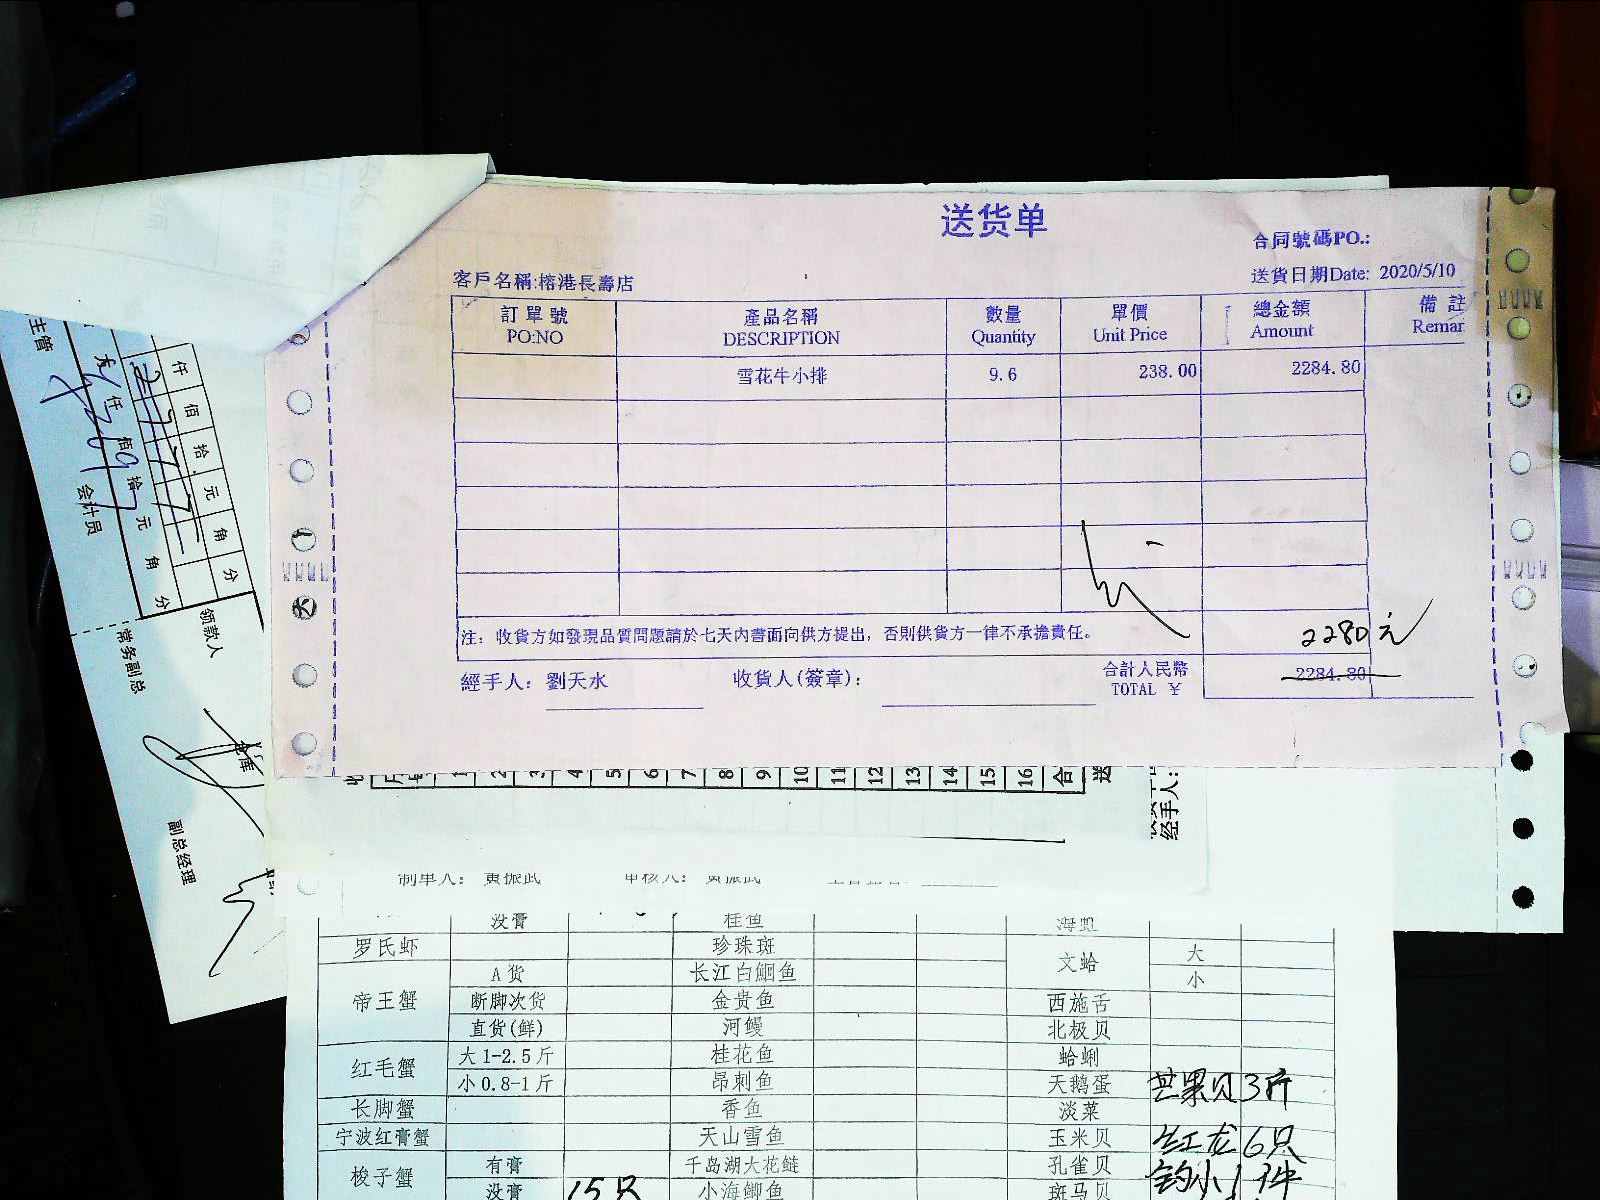 送货单
合同號碼PO.:
客戶名稱:榕港長壽店
送貨日期Date: 2020/5/10
訂單號 產品名稱 數量 單價 總金額 備註
PO:NO DESCRIPTION Quantity Unit Price Amount Remar
雪花牛小排 9.6 238.00 2284.80
注：收貨方如發現品質問題請於七天內書面向供方提出，否則供貨方一律不承擔責任。
2280元
經手人：劉天水 收貨人(簽章)： 合計人民幣 2284.80
TOTAL ￥
主管
仟 佰 拾 元 角 分
仟 佰 拾 元 角 分
会计员
领款人
常务副总
副总经理
1 2 3 4 5 6 7 8 9 10 11 12 13 14 15 16 合
送
经手人：
制单人： 黄振武 审核人： 黄振武
没膏 桂鱼 海虹
罗氏虾 珍珠斑 文蛤 大
帝王蟹 A货 长江白鮰鱼 小
断脚次货 金贵鱼 西施舌
直货(鲜) 河鳗 北极贝
红毛蟹 大1-2.5斤 桂花鱼 蛤蜊
小0.8-1斤 昂刺鱼 天鹅蛋 芒果贝3斤
长脚蟹 香鱼 淡菜
宁波红膏蟹 天山雪鱼 玉米贝 红龙6只
梭子蟹 有膏 千岛湖大花鲢 孔雀贝
没膏 15只 小海鲫鱼 斑马贝